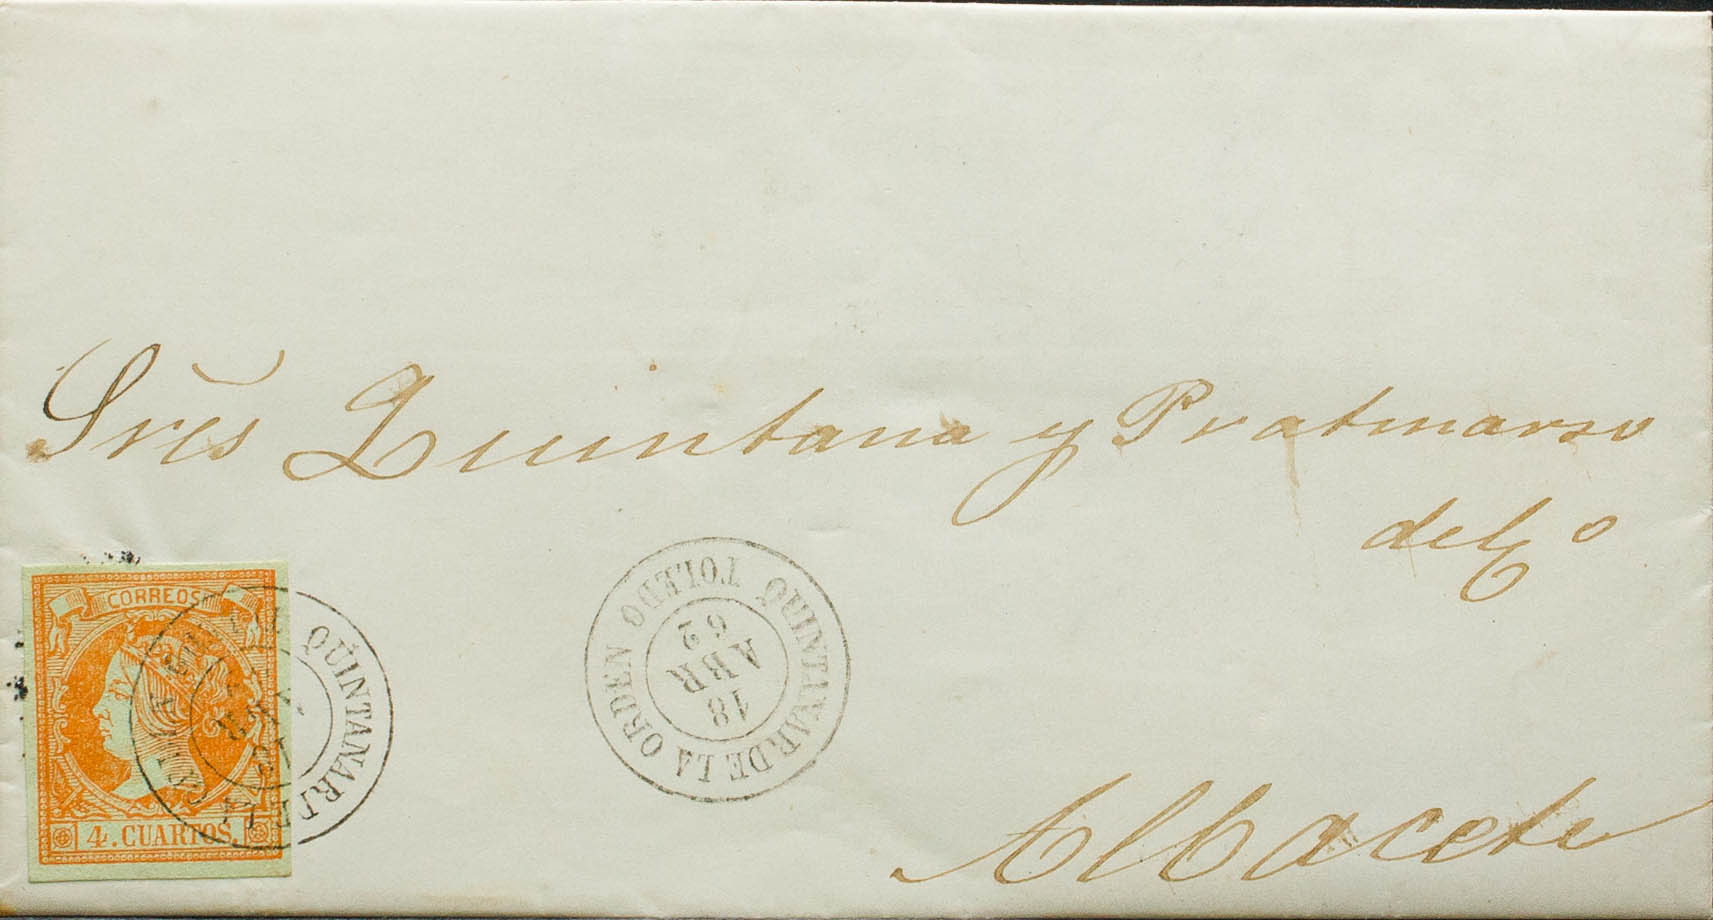 Sres Quintana y Pratmarso
del Co
Albacete
CORREOS
4. CUARTOS.
QUINTANAR DE LA
QUINTANAR DE LA ORDEN TOLEDO
18
ABR
62